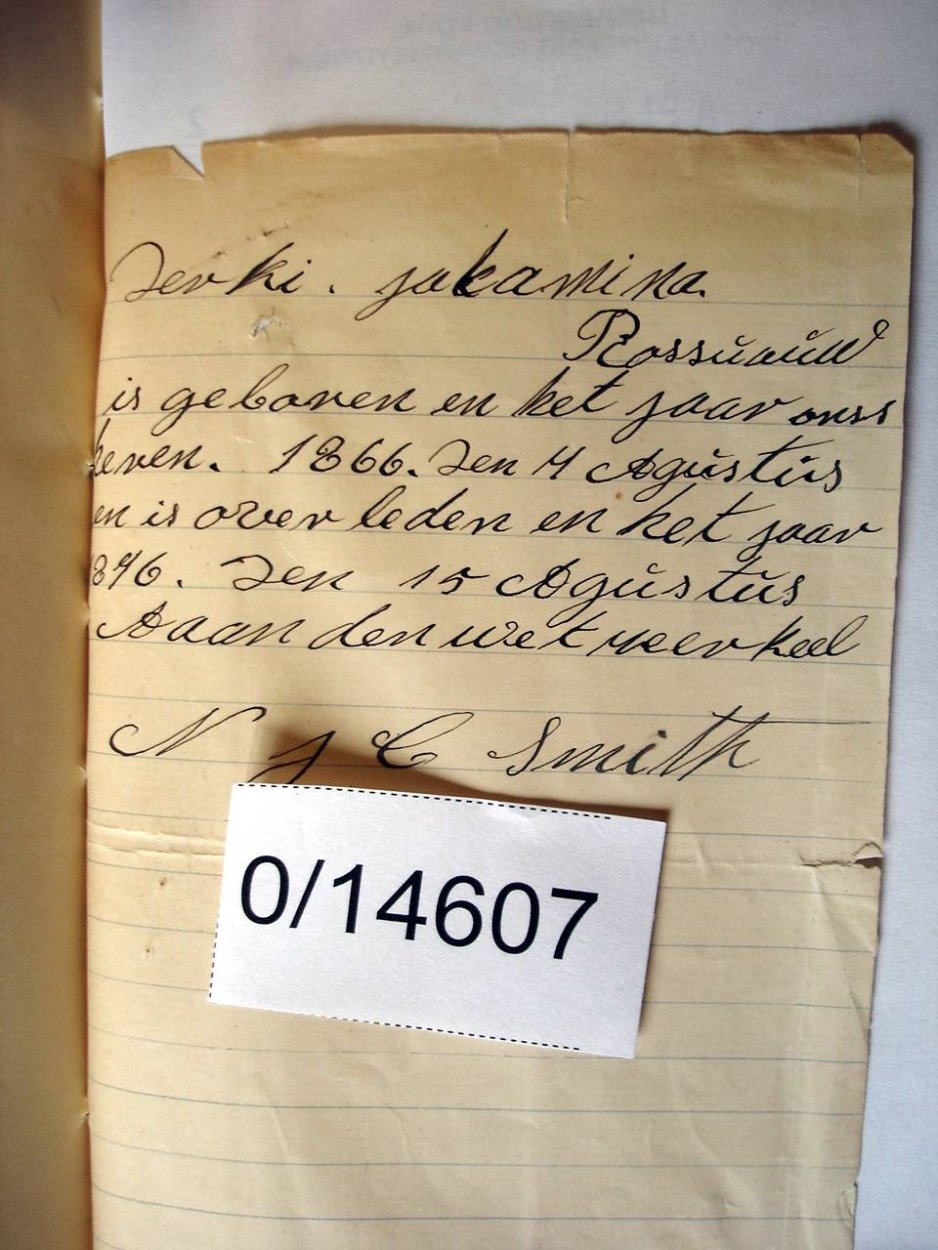 Derki. jakamina.
Rossuauw
is geboren en het jaar onss
heren. 1866. Den 4 Agustus
en is over leden en het jaar
1896. Den 15 Agustus
Aaan den wet
N J C Smith
0/14607